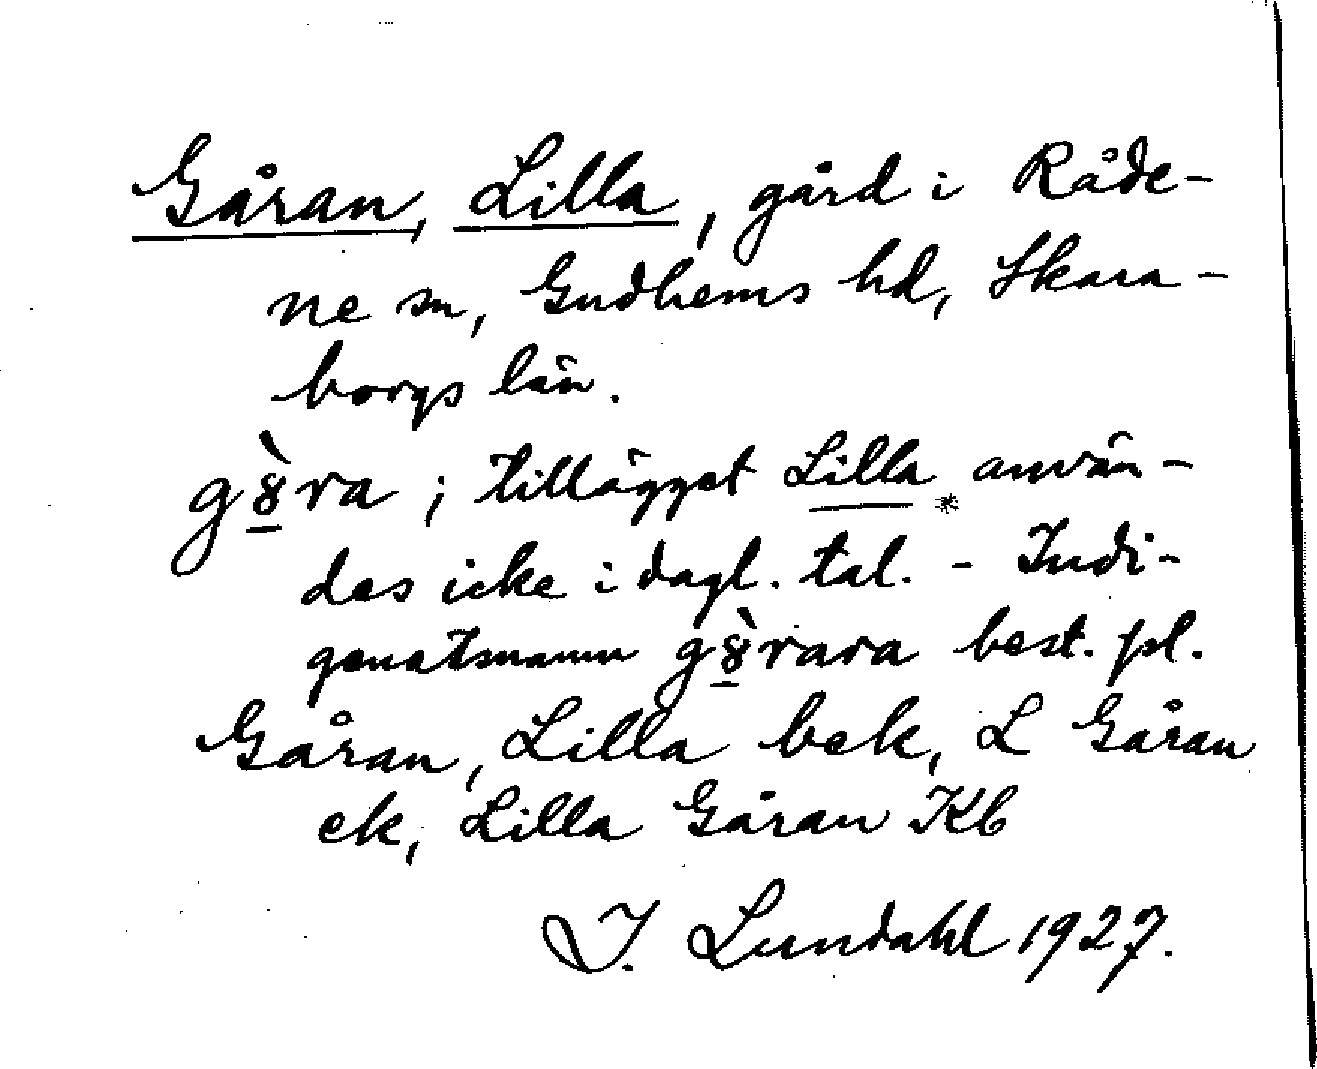 Gåran, Lilla, gård i Råde-
ne sn, Gudhems hd, Skara-
borgs län.
gȣ̀ra; tillägget Lilla * använ-
des icke i dagl. tal. - Indi-
genatsnamn gȣ̀rara best. pl.
Gåran, Lilla bek, L Gåran
ek, Lilla Gåran Kb
I. Lundahl 1927.